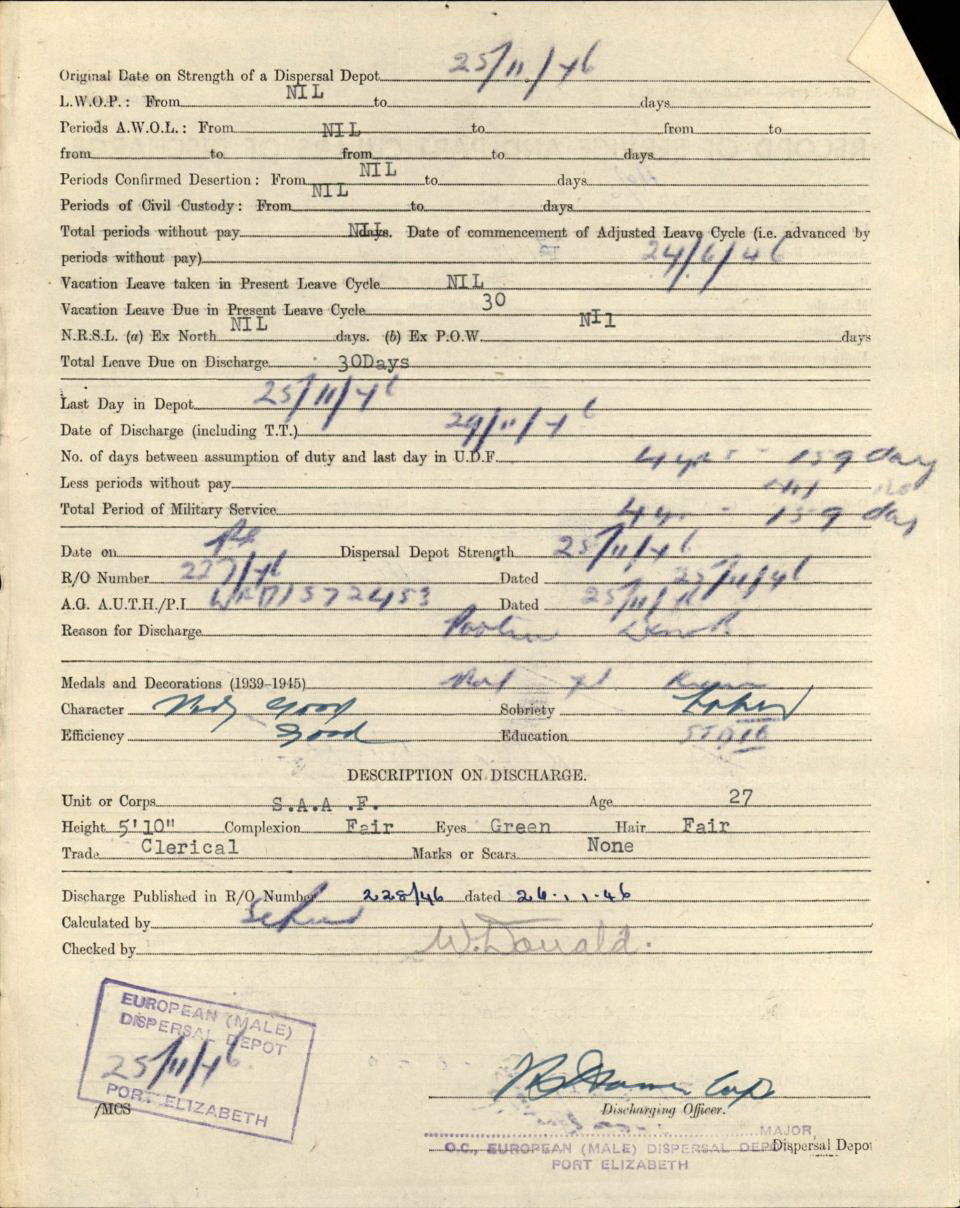 Original Date on Strength of a Dispersal Depot 25/11/46
L.W.O.P.: From NIL to days
Periods A.W.O.L.: From NIL to from to
from to from to days
Periods Confirmed Desertion: From NIL to days
Periods of Civil Custody: From NIL to days
Total periods without pay NIL days. Date of commencement of Adjusted Leave Cycle (i.e. advanced by
periods without pay) 24/6/46
Vacation Leave taken in Present Leave Cycle NIL
Vacation Leave Due in Present Leave Cycle 30
N.R.S.L. (a) Ex North NIL days. (b) Ex P.O.W. NIl days
Total Leave Due on Discharge 30Days
Last Day in Depot 25/11/46
Date of Discharge (including T.T.) 29/11/46
No. of days between assumption of duty and last day in U.D.F. 4 yrs - 159 day
Less periods without pay
Total Period of Military Service 4 yrs - 159 day
Date on Dispersal Depot Strength 25/11/46
R/O Number 227/46 Dated 25/11/46
A.G. A.U.T.H./P.I. Dated 25/11/46
Reason for Discharge
Medals and Decorations (1939-1945)
Character Very Good Sobriety Sober
Efficiency Good Education
DESCRIPTION ON DISCHARGE.
Unit or Corps S.A.A .F. Age 27
Height 5'10" Complexion Fair Eyes Green Hair Fair
Trade Clerical Marks or Scars None
Discharge Published in R/O Number 228/46 dated 26.11.46
Calculated by
Checked by W. Donald.
EUROPEAN (MALE)
DISPERSAL DEPOT
25/11/46
PORT ELIZABETH
/MCS
Discharging Officer.
MAJOR,
O.C., EUROPEAN (MALE) DISPERSAL DEPOT Dispersal Depot
PORT ELIZABETH